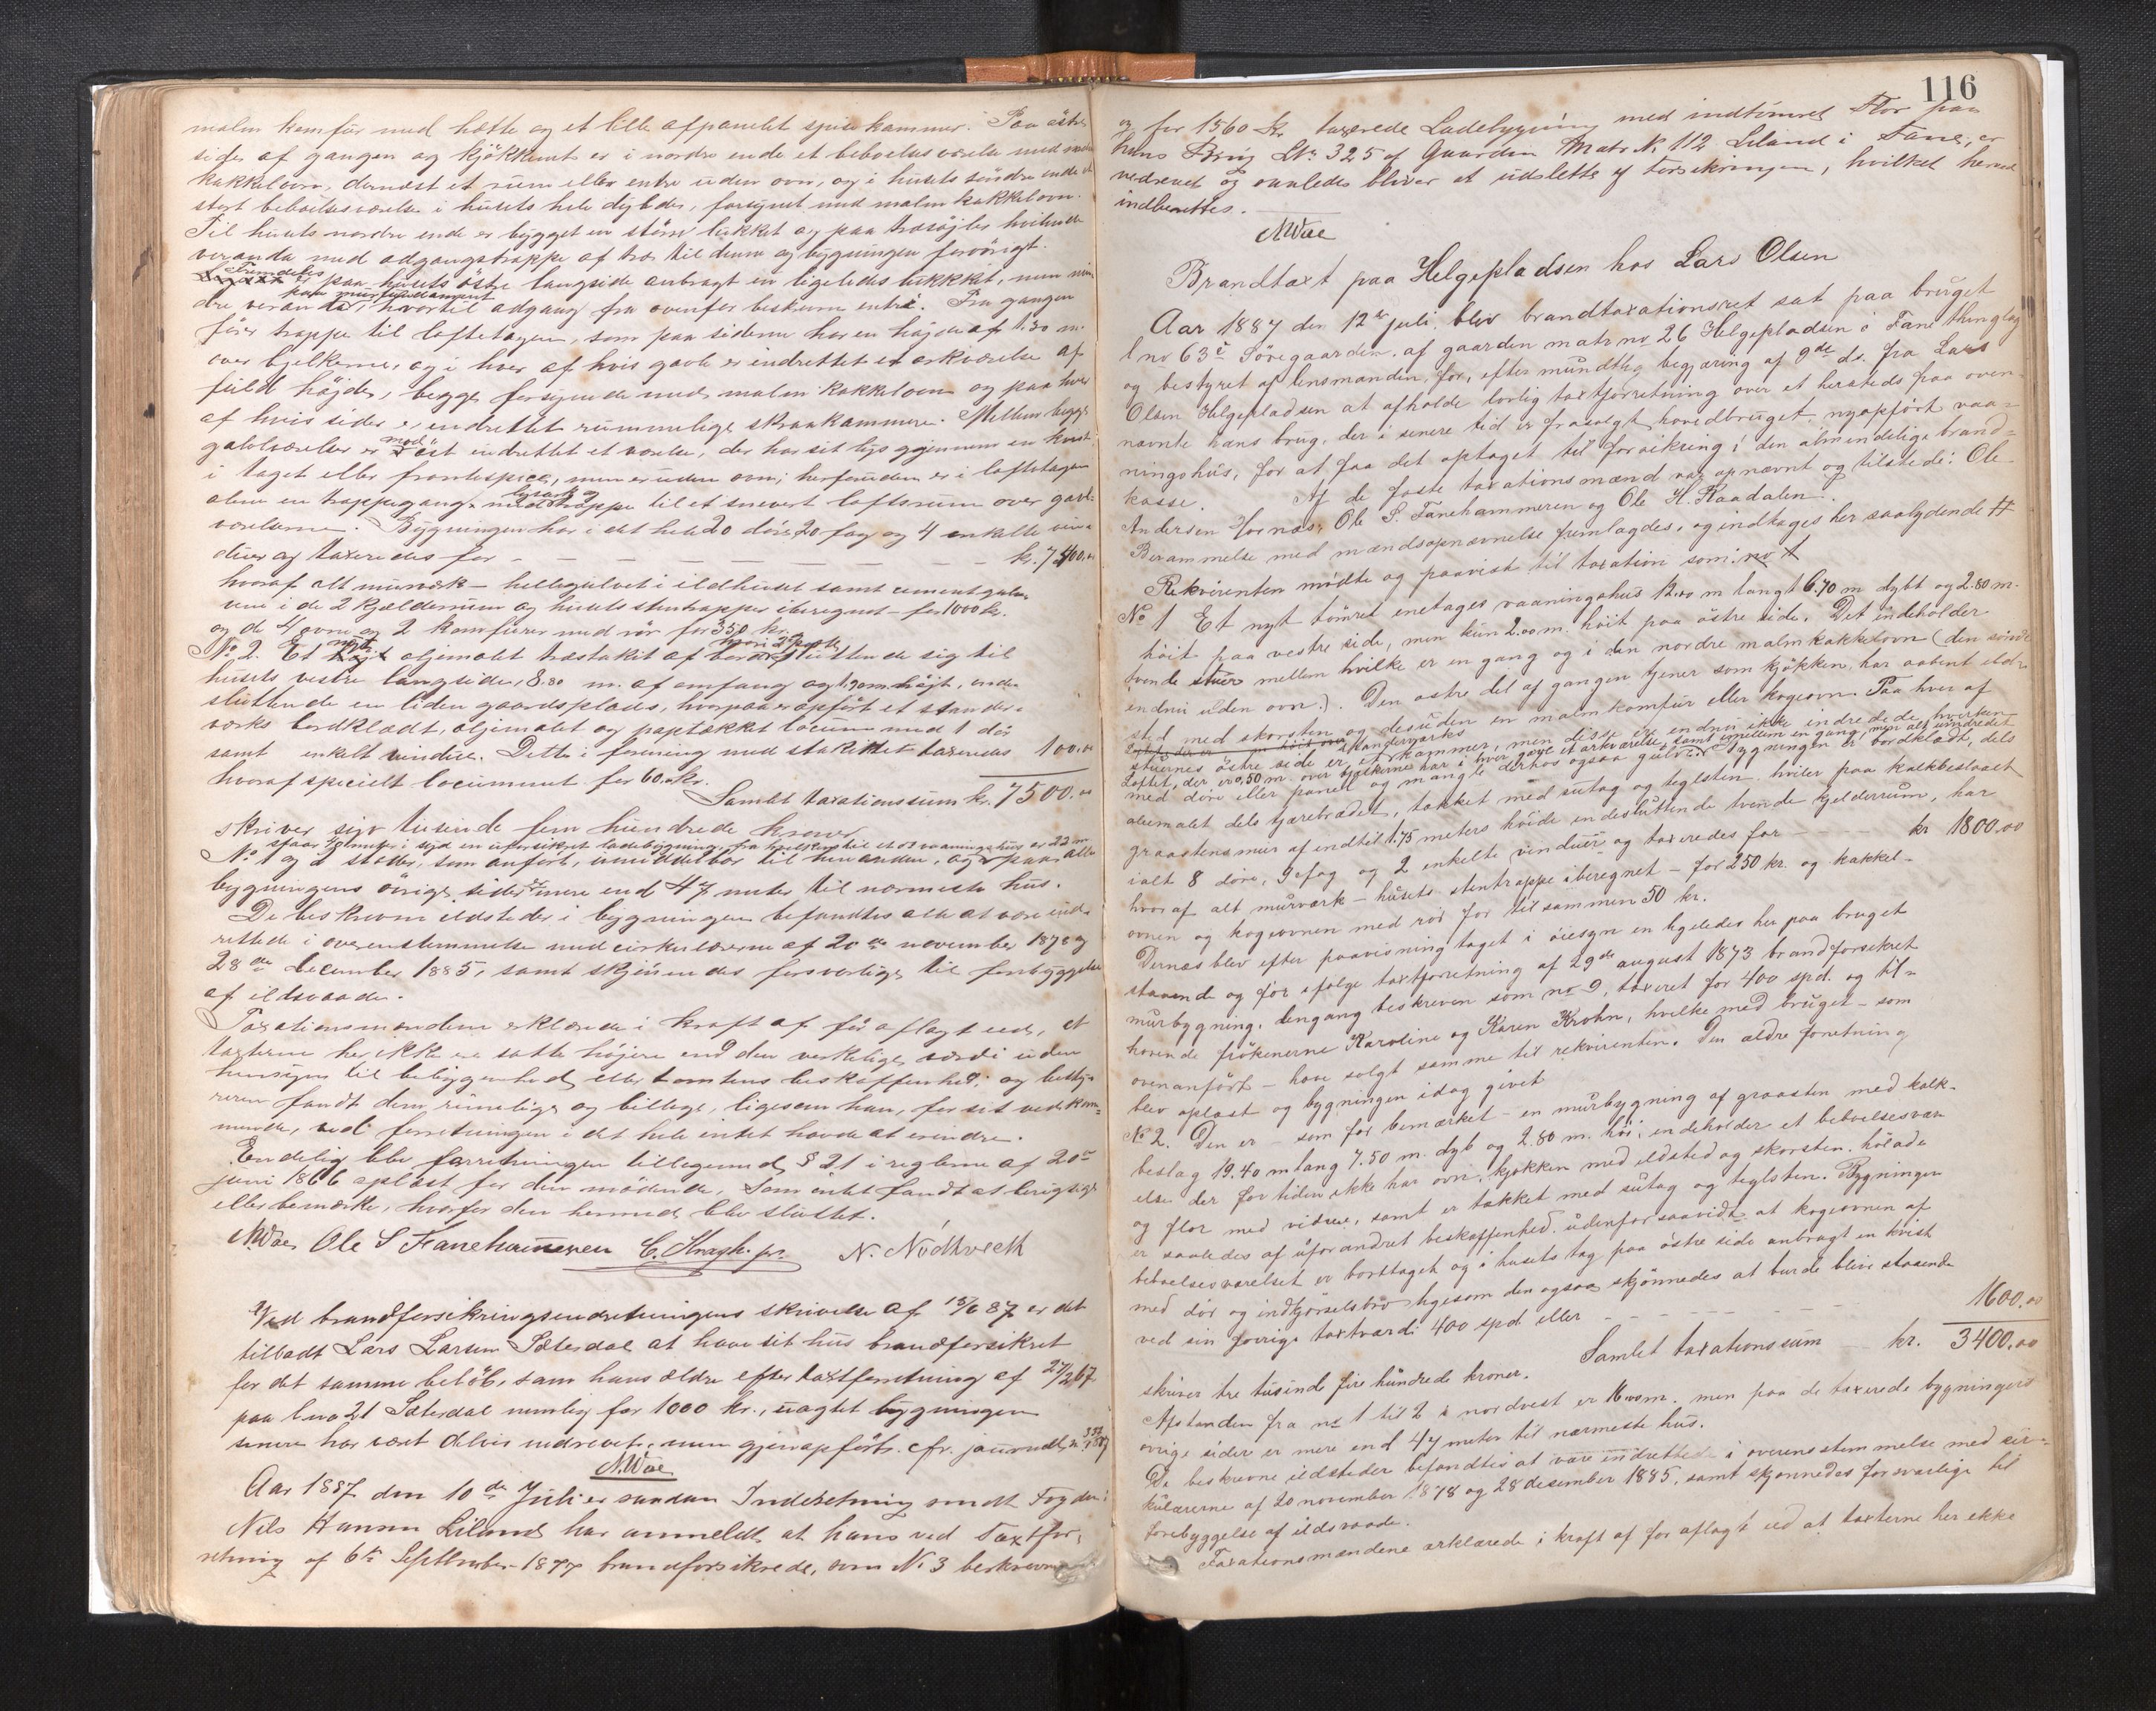 malm komfür med hætte og et lille afpanelet spisekammer. Paa östre
side af gangen og kjökkenet er i nordre ende et beboelsesværelse med
kakkelovn, dernæst et rum eller entre uden ovn, og i husets söndre ende et
stort beboelsesværelse i husets hele dybde, forsynet med malm kakkelovn.
Til husets nordre ende er bygget en större lukket og paa træsöjler hvilende
veranda med adgangstrappe af træ til denne og bygningen forövrigt.
Fremdeles er paa husets östre langside anbragt en ligeledes lukket, men min-
dre veranda, paa mürfundament hvortil adgang fra ovenfor beskrevne entré. Fra gangen
förer trappe til loftetagen, som paa siderne har en höjde af 1.30 m.
over bjelkerne, og i hver af hvis gavle er indrettet et arkværelse af
füld höjde, begge forsynede med malm kakkelovn og paa hver
af hvis sider er indrettet rummelige skraakammere. Mellem begge
gavlværelser er mod öst indrettet et værelse, der har sit lys gjennem en kvist
i taget eller frontespice, men er uden ovn; herforuden er i loftetagen
alene en trappegang med trappe til et snevert loftsrum over gavl-
værelserne. Bygningen har i det hele 20 döre, 20 fag og 4 enkelte vin-
duer og taxeredes for - - - - - - kr. 7400.00
hvoraf alt murværk - hellegulvet i ildhuset samt cementgul-
vene i de 2 kjelderrum og husets stentrapper iberegnet - for 1000 kr.
og de 4 ovne og 2 komfurer med rör for 350 kr.
No 2. Et nyt oljemalet træstakit af bord, sluttende sig til
husets vestre langside, 8.80 m. af omfang og 1.90 m. höjt, inde-
sluttende en liden gaardsplads, hvorpaa er opfört et stander-
værks bordklædt, oljemalet og paptækket locum med 1 dör
samt enkelt vindue. Dette i forening med stakittet taxeredes 100.00
hvoraf specielt locummet for 60.00 kr.
Samlet taxationssum kr. 7500.00
skriver syv tusinde fem hundrede kroner.
No 1 og 2 stöder, som anfört, umiddelbar til hinanden, og paa alle
bygningens övrige sider er mere end 47 meter til nærmeste hus.
De beskrevne ildsteder i bygningen befandtes alle at være ind-
rettede i overensstemmelse med cirkulærerne af 20de november 1878 og
28de december 1885, samt skjönnedes forsvarlige til forebyggelse
af ildsvaade.
Taxationsmændene erklærede i kraft af för aflagt eed, at
taxterne her ikke ere satte höjere end den verkelige værdi uden
hensyn til beliggenhed eller tomtens beskaffenhed; og besty-
reren fandt dem rimelige og billige, ligesom han, for sit vedkom-
mende, ved forretningen i det hele intet havde at erindre.
Endelig blev forretningen tillegemed § 21 i reglerne af 20de
juni 1866 oplæst for den mödende, som intet fandt at berigtige
eller bemærke, hvorfor den hermed blev sluttet.
NWae Ole S Fanehammeren C. Kragh. jr. N. Nödtvedt
Ved brandforsikringsindretningens skrivelse af 18/6 87 er det
tilladt Lars Larsen Sæterdal at have sit hus brandforsikret
for det samme belöb, som hans ældre efter taxtforretning af 27/2 67
paa lno 21 Sæterdal nemlig for 1000 kr., uagtet bygningen
senere har været delvis nedrevet, men gjenopfört. cfr. journal
NWae
Aar 1887 den 10de Juli er saadan Indberetning sendt Fogden:
Nils Hansen Liland har anmeldt at hans ved Taxtfor-
retning af 6te September 1877 brandforsikrede, som No 3 beskrevne
116
og for 1560 Kr. taxerede Ladebygning med indtömret Flor paa
hans Brug Lno 325 af Gaarden Matr No 112 Liland i Fane, er
nedrevet og saaledes bliver at udslette af Forsikringen, hvilket herved
indberettes.
NWae
Brandtaxt paa Helgepladsen hos Lars Olsen
Aar 1887 den 12te juli blev brandtaxationsret sat paa bruget
lno 63c Söregaarden af gaarden matr no 26 Helgepladsen i Fane thinglag
og bestyret af lensmanden, for, efter mundtlig begjæring af 9de ds. fra Lars
Olsen Helgepladsen at afholde lovlig taxtforretning over et hersteds paa oven-
nævnte hans brug, der i senere tid er frasolgt hovedbruget, nyopfört vaa-
ningshus, for at faa det optaget til forsikring i den almindelige brand-
kasse. Af de faste taxationsmænd var opnævnt og tilstede: Ole
Andersen Hornæs, Ole S. Fanehammeren og Ole H. Raadalen.
Berammelse med mændsopnævnelse fremlagdes, og indtages her saalydende #
Rekvirenten mödte og paaviste til taxation som:
No 1 Et nyt tömret enetages vaaningshus 12.00 m langt 6.70 m dybt og 2.80 m.
höit paa vestre side, men kun 2.00 m. höit paa östre side. Det indeholder
tvende stuer mellem hvilke er en gang og i den nordre malmkakkelovn (den söndre
endnu uden ovn.). Den östre del af gangen tjener som kjökken, har aabent ild-
sted med skorsten og desuden en malm komfür eller kogeovn. Paa hver af
stuernes östre side er et standerværks kammer, men disse er endnu ikke indredede hverken
Loftet, der er 0.50 m. over bjelkerne har i hver gavl et arkværelse, samt imellem en gang, men alt uindredet
med döre eller panel og mangle derhos ogsaa gulve. Bygningen er bordklædt, dels
oliemalet dels tjærebrædet, tækket med sutag og teglsten, hviler paa kalkbeslaaet
graastensmur af indtil 1.75 meters höide indesluttende tvende kjelderrum, har
ialt 8 döre, 9 fag og 2 enkelte vinduer og taxeredes for - - - kr 1800.00
hvoraf alt murværk - husets stentrappe iberegnet - for 250 kr. og kakkel-
ovnen og kogeovnen med rör for tilsammen 50 kr.
Dernæst blev efter paavisning taget i öiesyn en ligeledes her paa bruget
staaende og för ifölge taxtforretning af 29de august 1873 brandforsikret
murbygning, dengang beskreven som no 9, taxeret for 400 spd. og til-
hörende frökenerne Karoline og Karen Krohn, hvilke med bruget - som
ovenanfört - have solgt samme til rekvirenten. Den ældre forretning
blev oplæst og bygningen idag givet
No 2. Den er - som för bemærket - en murbygning af graasten med kalk-
beslag 19.40 m lang 7.50 m. dyb og 2.80 m. höi, indeholder et beboelsesvær-
else der for tiden ikke har ovn, kjökken med ildsted og skorsten, hölade
og flor med vidare, samt er tækket med sutag og teglsten. Bygningen
er saaledes af uforandret beskaffenhed udenfor saavidt at kogeovnen af
beboelsesværelset er borttaget og i husets tag paa östre side anbragt en kvist
med dör og indkjörselsbro ligesom den ogsaa skjönnedes at burde blive staaende
ved sin forrige taxtværdi 400 spd eller - - - - - 1600.00
Samlet taxationssum kr. 3400.00
skriver tre tusinde fire hundrede kroner.
Afstanden fra no 1 til 2 i nordvest er m. men paa de taxerede bygningers
övrige sider er mere end 47 meter til nærmeste hus.
De beskrevne ildsteder befandtes at være indrettede i overensstemmelse med cir-
kulærerne af 20 november 1878 og 28 desember 1885, samt skjönnedes forsvarlige til
forebyggelse af ildsvaade.
Taxationsmændene erklærede i kraft af för aflagt ed at taxterne her ikke